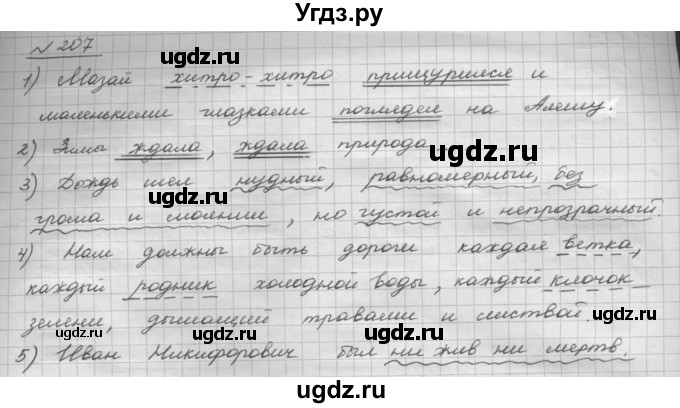 Угдз.ру
№ 207
1) Мазай хитро-хитро прищурился и
маленькими глазками поглядел на Алешу.
2) Зимы ждала, ждала природа
3) Дождь шел нудный, равномерный, без
грома и молнии, но густой и непрозрачный.
4) Нам должны быть дороги каждая ветка,
каждый родник холодной воды, каждый клочок
зелени, дышащий травами и листвой.
5) Иван Никифорович был ни жив ни мертв.
ugdz.ru
ugdz.ru
ugdz.ru
ugdz.ru
ugdz.ru
ugdz.ru
ugdz.ru
ugdz.ru
ugdz.ru
ugdz.ru